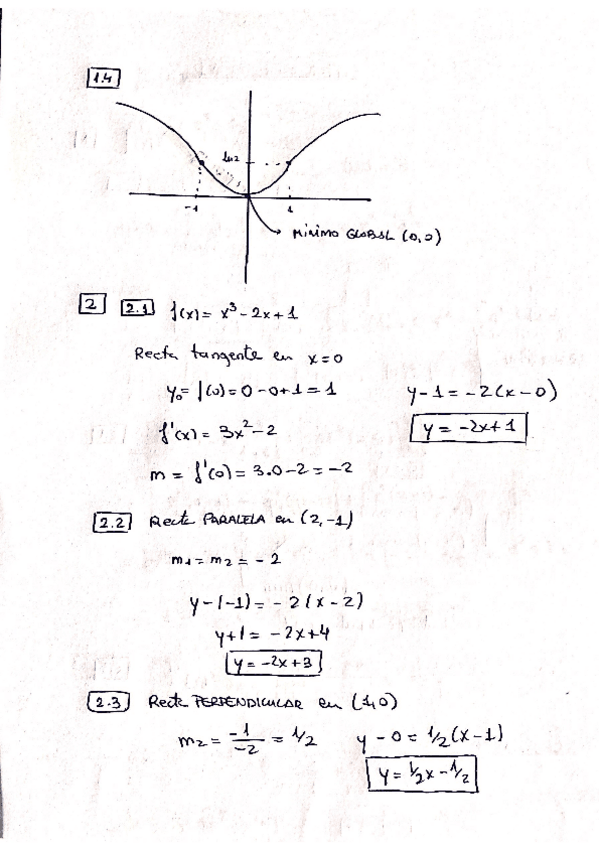 1.4
ln2
-1 1
MÍNIMO GLOBAL (0,0)
2 2.1 f(x) = x³ - 2x + 1
Recta tangente en x=0
y₀ = f(0) = 0 - 0 + 1 = 1
y - 1 = -2(x - 0)
f'(x) = 3x² - 2
y = -2x + 1
m = f'(0) = 3·0 - 2 = -2
2.2 Recta PARALELA en (2,-1)
m₁ = m₂ = -2
y - (-1) = -2(x - 2)
y + 1 = -2x + 4
y = -2x + 3
2.3 Recta PERPENDICULAR en (1,0)
m₂ = -1/-2 = 1/2
y - 0 = 1/2 (x - 1)
y = 1/2 x - 1/2